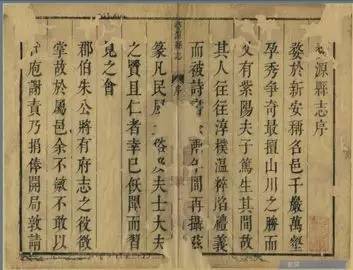 源縣志序
婺於新安稱名邑千巖萬壑
孕秀爭奇最擅山川之勝而
又有紫陽夫子篤生其間故
其人往往淳樸溫粹蹈禮義
而被詩書間再攝茲
篆凡民俗夫士大夫
源縣志 序
之賢且仁者幸已飫聞而習
見之會
郡伯朱公將有府志之役徵
掌故於屬邑余不敏不敢以
庖謝責乃捐俸開局敦請